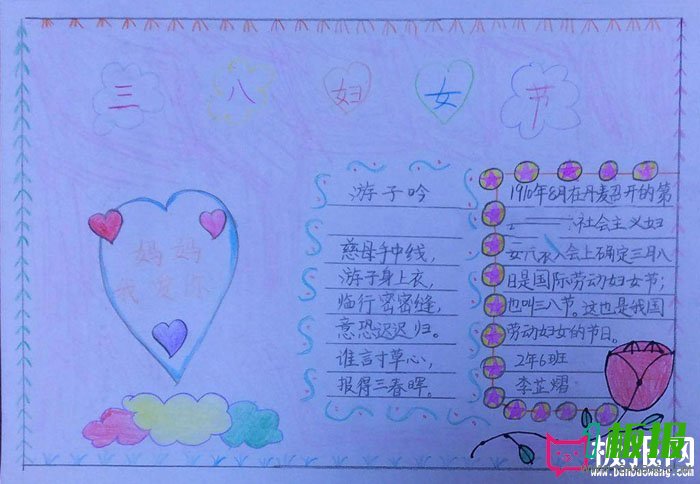 三八妇女节
妈妈
我爱你
游子吟
慈母手中线,
游子身上衣,
临行密密缝,
意恐迟迟归。
谁言寸草心,
报得三春晖。
1910年8月在丹麦召开的第
社会主义妇
女 大会上确定三月八
日是国际劳动妇女节;
也叫三八节。这也是我国
劳动妇女的节日。
2年6班
李芷熠
板报网
www.banbaowang.com